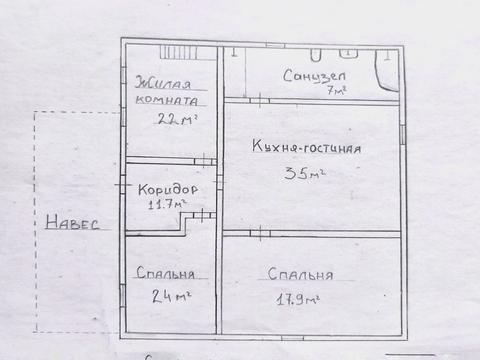 Жилая
комната
22 м²
Санузел
7м²
Кухня-гостиная
35м²
Коридор
11.7м²
Навес
Спальня
24м²
Спальня
17.9м²